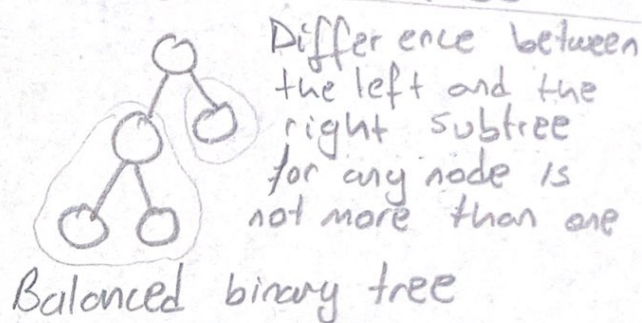 Difference between
the left and the
right subtree
for any node is
not more than one
Balanced binary tree